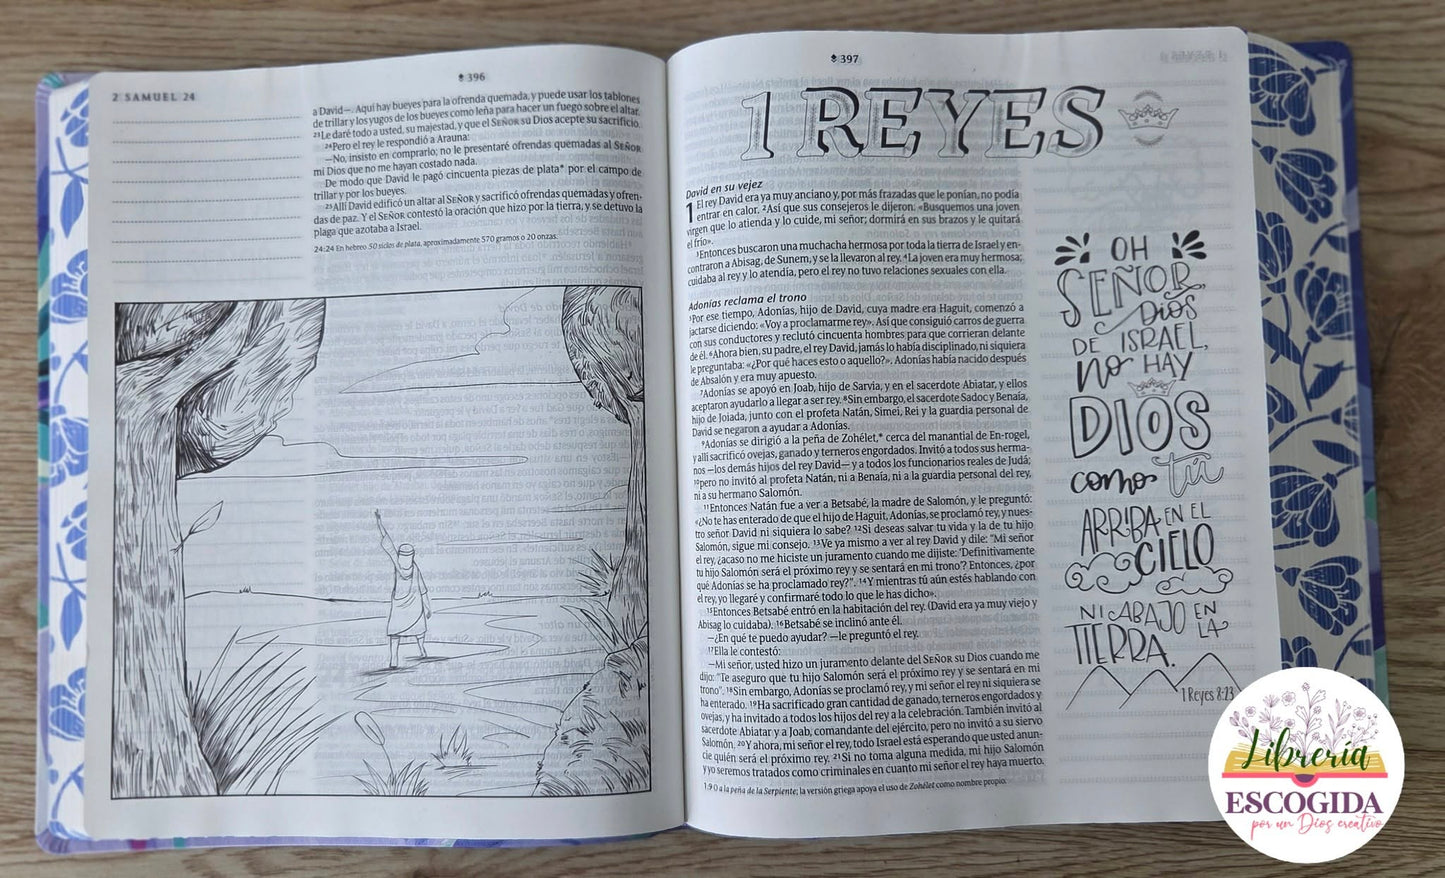 396
2 SAMUEL 24
a David—. Aquí hay bueyes para la ofrenda quemada, y puede usar los tablones
de trillar y los yugos de los bueyes como leña para hacer un fuego sobre el altar.
23Le daré todo a usted, su majestad, y que el SEÑOR su Dios acepte su sacrificio.
24Pero el rey le respondió a Arauna:
—No, insisto en comprarlo; no le presentaré ofrendas quemadas al SEÑOR
mi Dios que no me hayan costado nada.
De modo que David le pagó cincuenta piezas de plata* por el campo de
trillar y por los bueyes.
25Allí David edificó un altar al SEÑOR y sacrificó ofrendas quemadas y ofren-
das de paz. Y el SEÑOR contestó la oración que hizo por la tierra, y se detuvo la
plaga que azotaba a Israel.
24:24 En hebreo 50 siclos de plata, aproximadamente 570 gramos o 20 onzas.
397
1 REYES
David en su vejez
1 El rey David era ya muy anciano y, por más frazadas que le ponían, no podía
entrar en calor. 2Así que sus consejeros le dijeron: «Busquemos una joven
virgen que lo atienda y lo cuide, mi señor; dormirá en sus brazos y le quitará
el frío».
3Entonces buscaron una muchacha hermosa por toda la tierra de Israel y en-
contraron a Abisag, de Sunem, y se la llevaron al rey. 4La joven era muy hermosa;
cuidaba al rey y lo atendía, pero el rey no tuvo relaciones sexuales con ella.
Adonías reclama el trono
5Por ese tiempo, Adonías, hijo de David, cuya madre era Haguit, comenzó a
jactarse diciendo: «Voy a proclamarme rey». Así que consiguió carros de guerra
con sus conductores y reclutó cincuenta hombres para que corrieran delante
de él. 6Ahora bien, su padre, el rey David, jamás lo había disciplinado, ni siquiera
le preguntaba: «¿Por qué haces esto o aquello?». Adonías había nacido después
de Absalón y era muy apuesto.
7Adonías se apoyó en Joab, hijo de Sarvia, y en el sacerdote Abiatar, y ellos
aceptaron ayudarlo a llegar a ser rey. 8Sin embargo, el sacerdote Sadoc y Benaía,
hijo de Joiada, junto con el profeta Natán, Simei, Rei y la guardia personal de
David se negaron a ayudar a Adonías.
9Adonías se dirigió a la peña de Zohélet,* cerca del manantial de En-rogel,
y allí sacrificó ovejas, ganado y terneros engordados. Invitó a todos sus herma-
nos —los demás hijos del rey David— y a todos los funcionarios reales de Judá;
10pero no invitó al profeta Natán, ni a Benaía, ni a la guardia personal del rey,
ni a su hermano Salomón.
11Entonces Natán fue a ver a Betsabé, la madre de Salomón, y le preguntó:
«¿No te has enterado de que el hijo de Haguit, Adonías, se proclamó rey, y nues-
tro señor David ni siquiera lo sabe? 12Si deseas salvar tu vida y la de tu hijo
Salomón, sigue mi consejo. 13Ve ya mismo a ver al rey David y dile: "Mi señor
el rey, ¿acaso no me hiciste un juramento cuando me dijiste: 'Definitivamente
tu hijo Salomón será el próximo rey y se sentará en mi trono'? Entonces, ¿por
qué Adonías se ha proclamado rey?". 14Y mientras tú aún estés hablando con
el rey, yo llegaré y confirmaré todo lo que le has dicho».
15Entonces Betsabé entró en la habitación del rey. (David era ya muy viejo y
Abisag lo cuidaba). 16Betsabé se inclinó ante él.
—¿En qué te puedo ayudar? —le preguntó el rey.
17Ella le contestó:
—Mi señor, usted hizo un juramento delante del SEÑOR su Dios cuando me
dijo: "Te aseguro que tu hijo Salomón será el próximo rey y se sentará en mi
trono". 18Sin embargo, Adonías se proclamó rey, y mi señor el rey ni siquiera se
ha enterado. 19Ha sacrificado gran cantidad de ganado, terneros engordados y
ovejas, y ha invitado a todos los hijos del rey a la celebración. También invitó al
sacerdote Abiatar y a Joab, comandante del ejército, pero no invitó a su siervo
Salomón. 20Y ahora, mi señor el rey, todo Israel está esperando que usted anun-
cie quién será el próximo rey. 21Si no toma alguna medida, mi hijo Salomón
y yo seremos tratados como criminales en cuanto mi señor el rey haya muerto.
1:9 O a la peña de la Serpiente; la versión griega apoya el uso de Zohélet como nombre propio.
OH
SEÑOR,
DIOS
DE ISRAEL,
no HAY
DIOS
como tú
ARRIBA EN EL
CIELO
NI ABAJO EN
LA
TIERRA.
1 Reyes 8:23
Librería
ESCOGIDA
por un Dios creativo